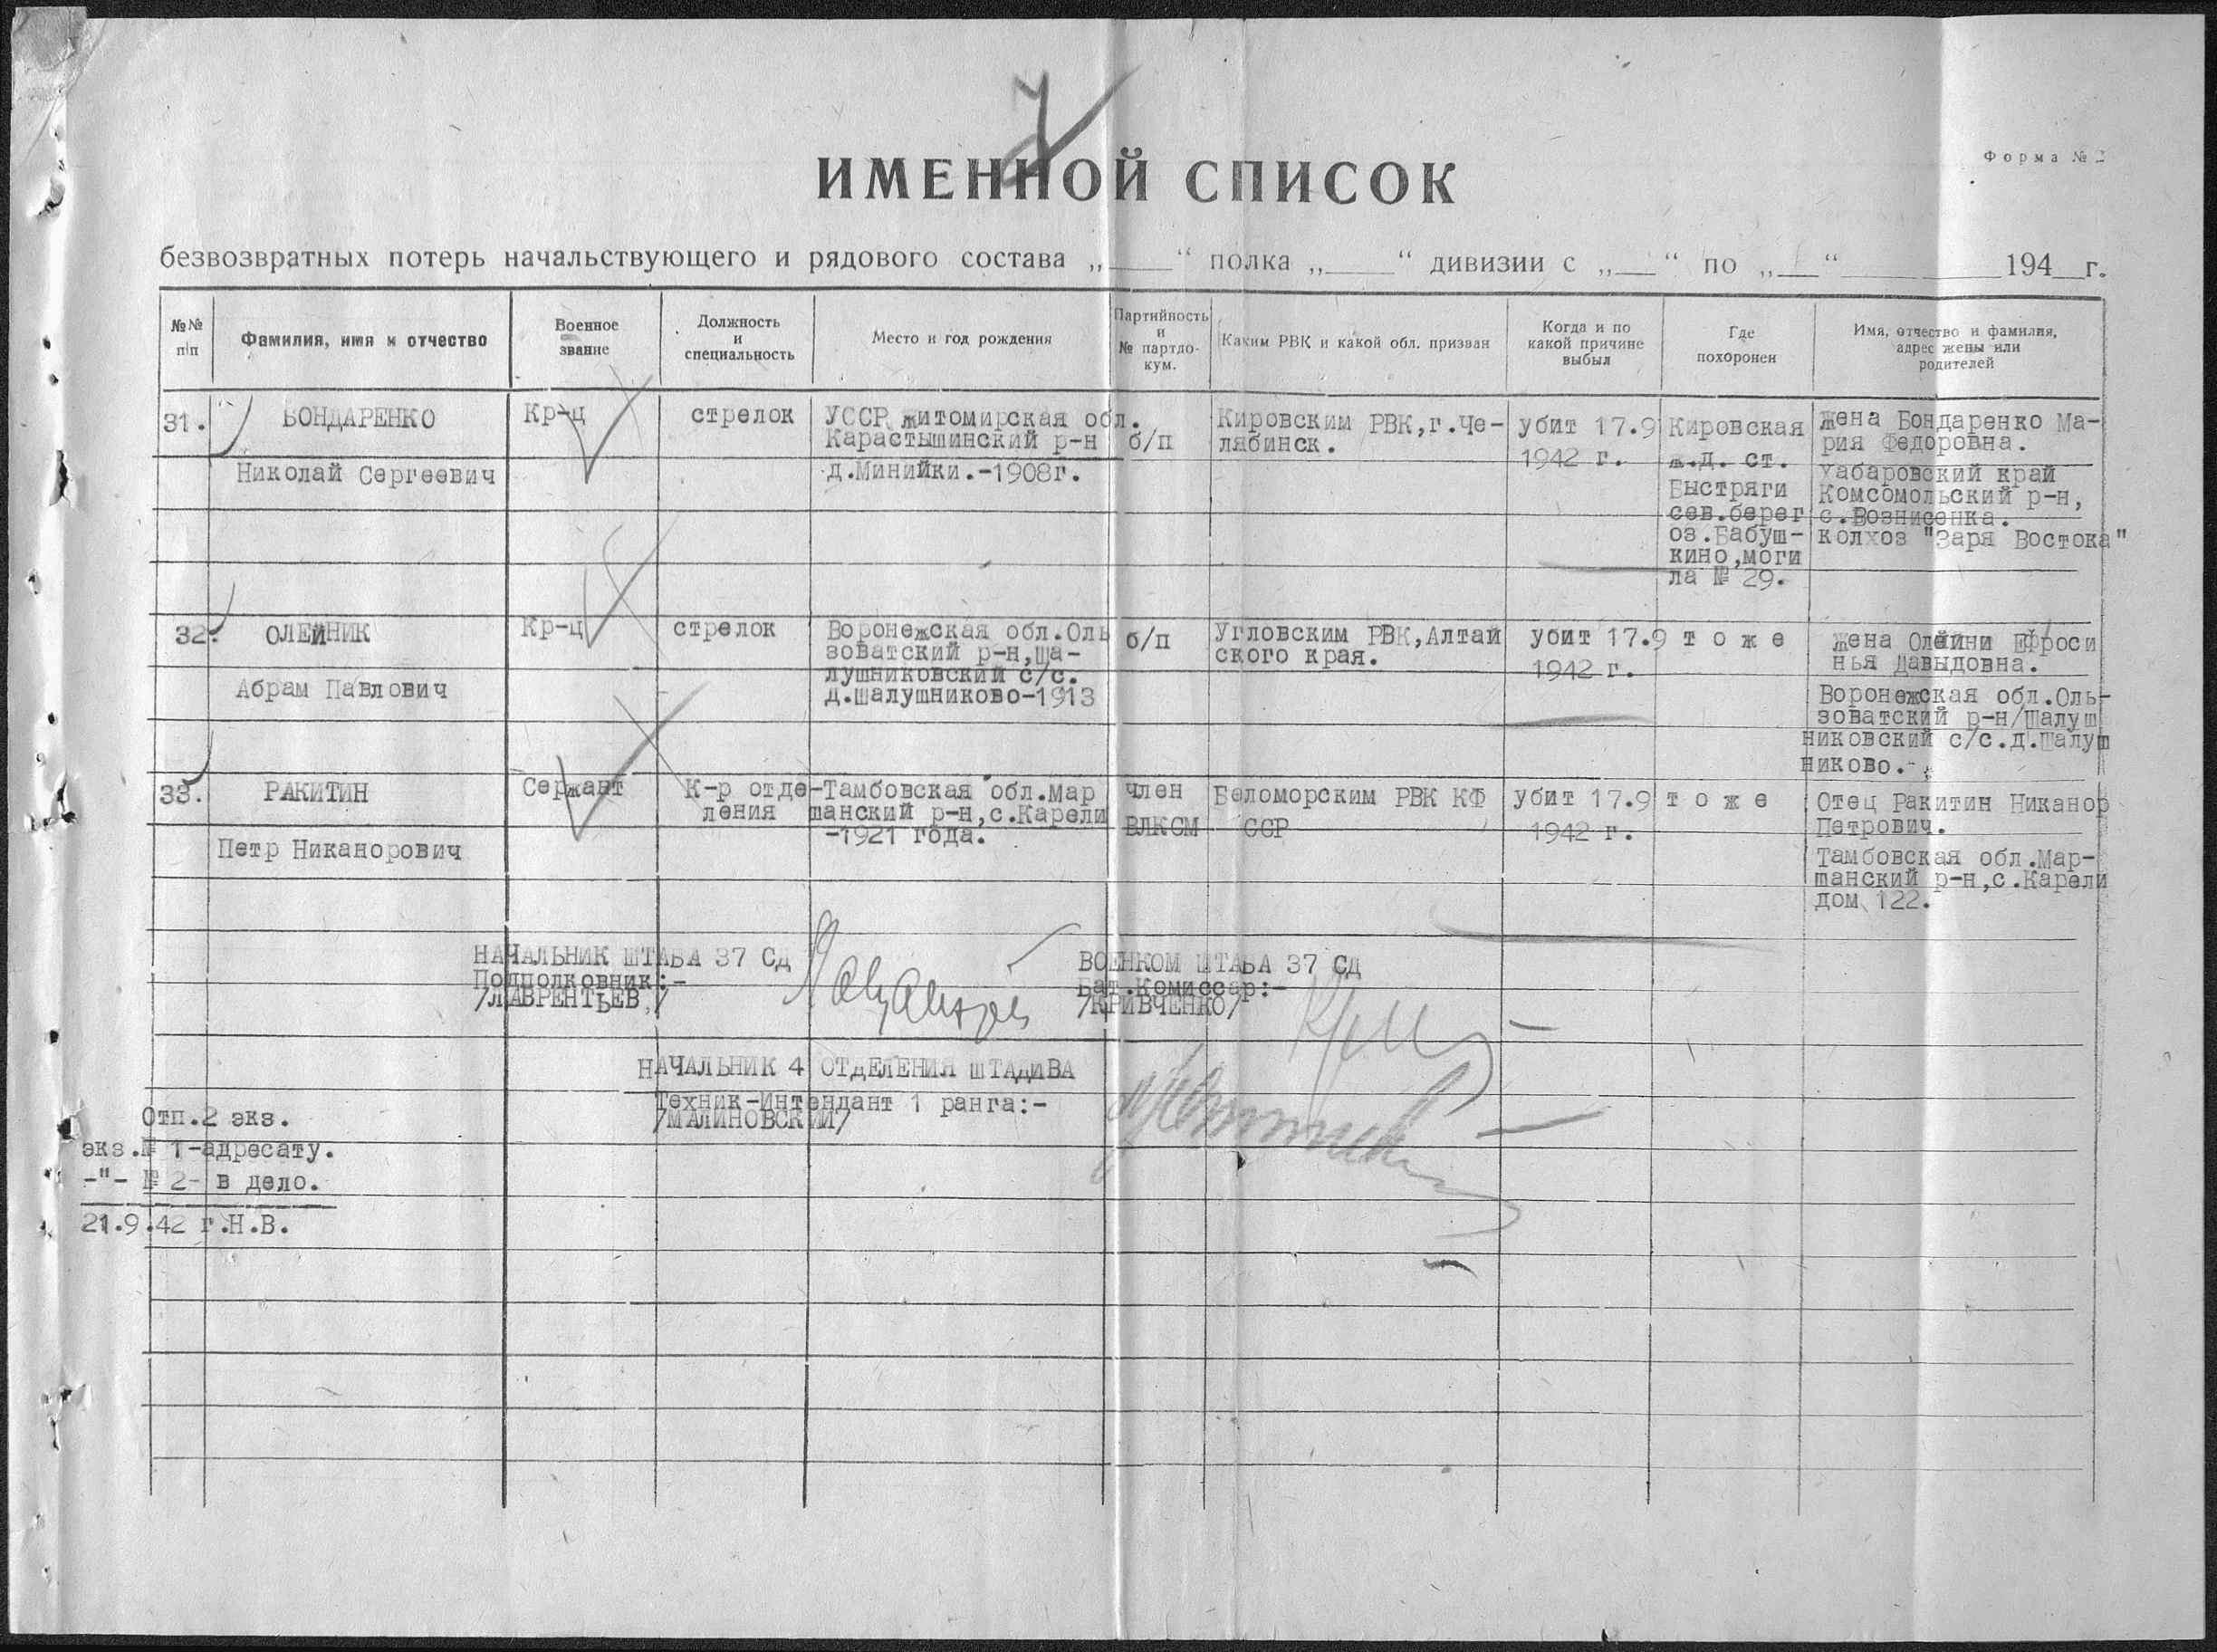 Форма № 2
ИМЕННОЙ СПИСОК
безвозвратных потерь начальствующего и рядового состава „____“ полка „____“ дивизии с „___“ по „___“ 194__г.
№№ п/п
Фамилия, имя и отчество
Военное звание
Должность и специальность
Место и год рождения
Партийность и № партдокум.
Каким РВК и какой обл. призван
Когда и по какой причине выбыл
Где похоронен
Имя, отчество и фамилия, адрес жены или родителей
31.
БОНДАРЕНКО
Николай Сергеевич
Кр-ц
стрелок
УССР житомирская обл.
Карастышинский р-н
д.Минийки.-1908г.
б/п
Кировским РВК,г.Че-
лябинск.
убит 17.9
1942 г.
Кировская
ж.д. ст.
Быстряги
сев.берег
оз.Бабуш-
кино,моги
ла № 29.
жена Бондаренко Ма-
рия Федоровна.
Хабаровский край
Комсомольский р-н,
с.Вознисенка.
колхоз "Заря Востока"
32.
ОЛЕЙНИК
Абрам Павлович
Кр-ц
стрелок
Воронежская обл.Оль
зоватский р-н,ша-
лушниковский с/с.
д.шалушниково-1913
б/п
Угловским РВК,Алтай
ского края.
убит 17.9
1942 г.
т о ж е
жена Олейни Ефроси
нья Давыдовна.
Воронежская обл.Оль-
зоватский р-н/Шалуш
никовский с/с.д.Шалуш
никово.-
33.
РАКИТИН
Петр Никанорович
Сержант
К-р отде-
ления
Тамбовская обл.Мар
шанский р-н,с.Карели
-1921 года.
член
ВЛКСМ
Беломорским РВК КФ
ССР
убит 17.9
1942 г.
т о ж е
Отец Ракитин Никанор
Петрович.
Тамбовская обл.Мар-
шанский р-н,с.Карели
дом 122.
НАЧАЛЬНИК ШТАБА 37 СД
Подполковник:-
/ЛАВРЕНТЬЕВ,/
ВОЕНКОМ ШТАБА 37 СД
Бат.Комиссар:-
/КРИВЧЕНКО/
НАЧАЛЬНИК 4 ОТДЕЛЕНИЯ ШТАДИВА
Техник-Интендант 1 ранга:-
/МАЛИНОВСКИЙ/
Отп.2 экз.
экз.№ 1-адресату.
-"- № 2- в дело.
21.9.42 г.Н.В.